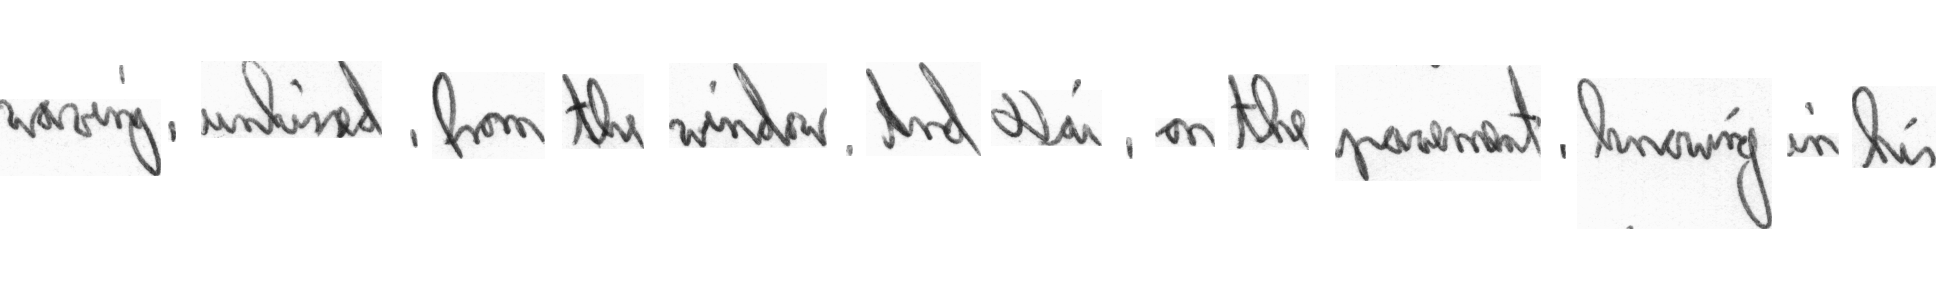 waving, unkissed, from the window. And , on the pavement, knowing in his